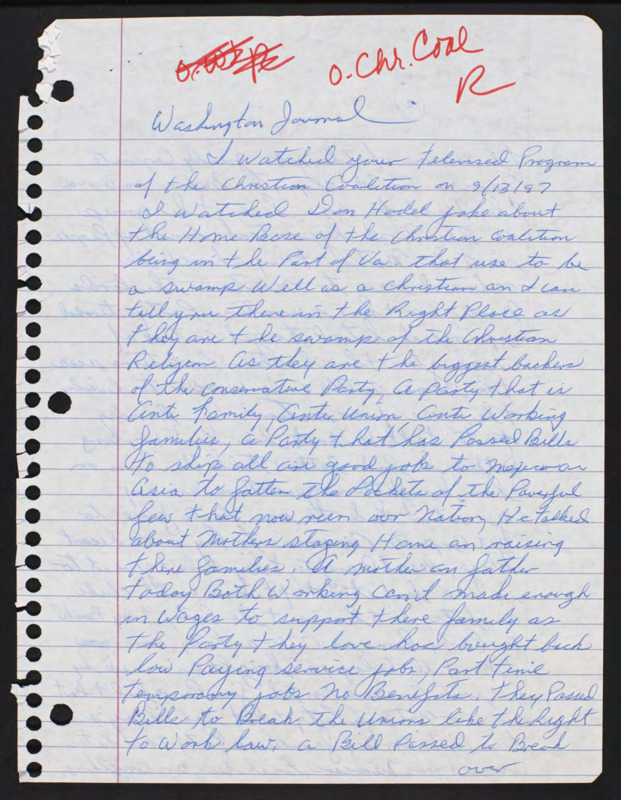 O. Chr. Coal
R
Washington Journal
I Watched your Televised Program
of the Christian Coalition on 9/13/97
I Watched Don Hodel joke about
the Home Base of the Christian Coalition
being in the Part of Va that use to be
a swamp Well as a christian an I can
tell you there in the Right Place as
they are the swamp of the Christian
Religon As they are the biggest backers
of the conservative Party, A Party that is
Anti Family, Anti Union, Anti Working
families, a Party that has Passed Bills
to ship all are good jobs to Mexico an
Asia to fatten the Pockets of the Powerful
few that now run our Nation, He talked
about Mothers staying Home an raising
there families. A mother an father
today Both Working can't make enough
in Wages to support there family as
the Party they love has brought back
low Paying service jobs, Part time
temporary jobs No Benefits. They Passed
Bills to Break the Unions like the Right
to Work law, a Bill Passed to Break
over